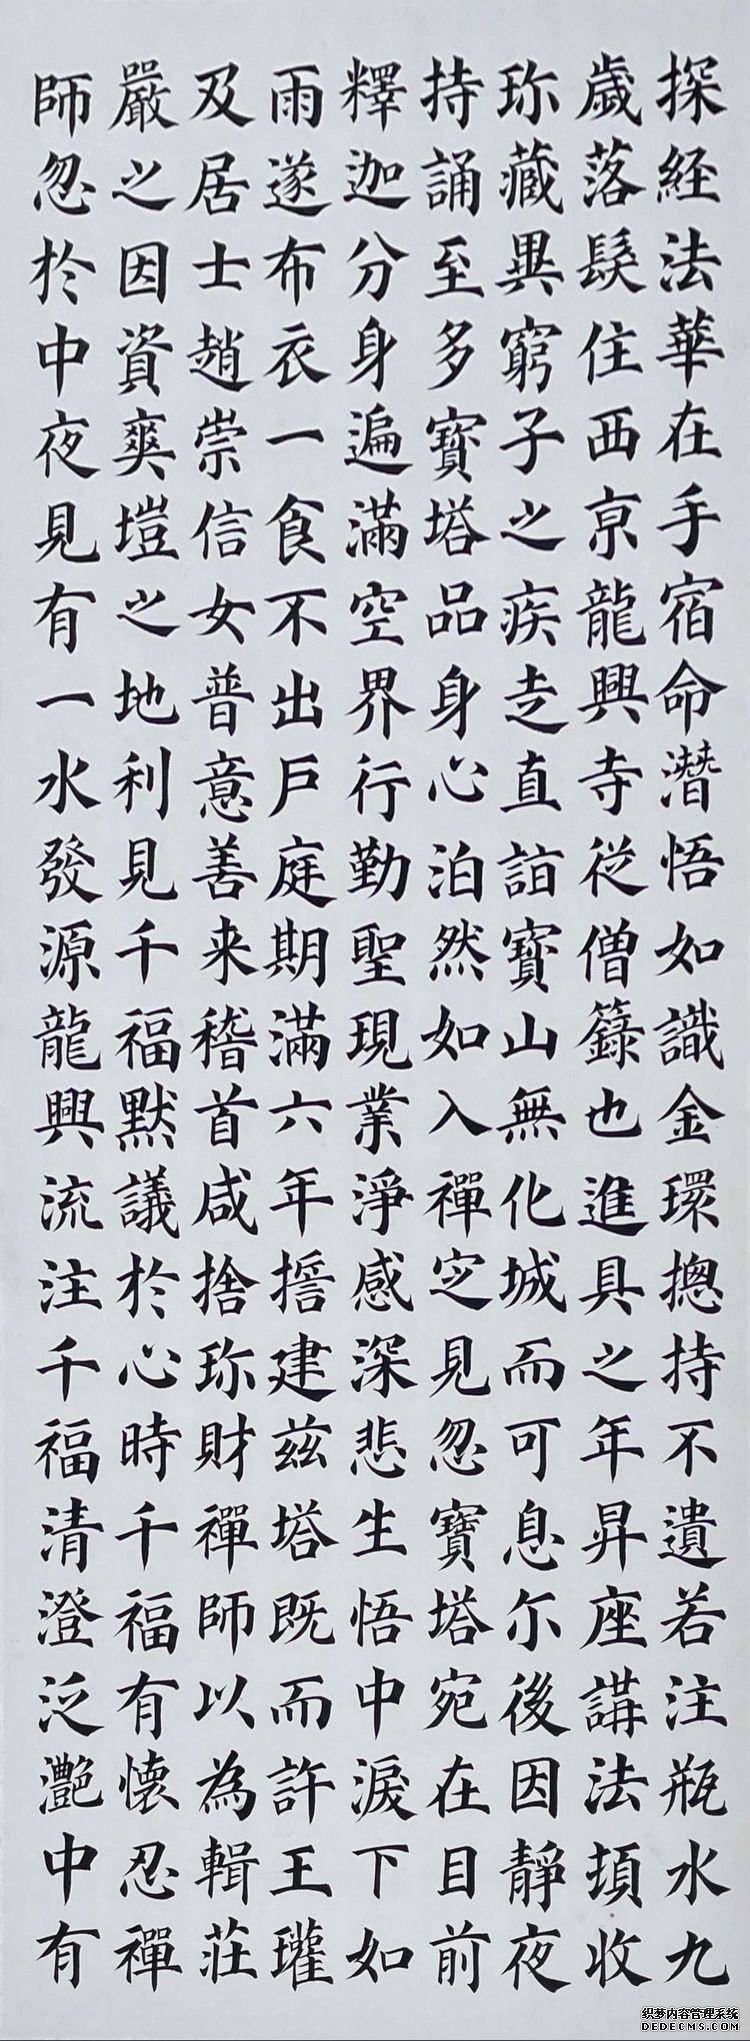 探経法華在手宿命潛悟如識金環摠持不遺若注瓶水九
歲落髮住西京龍興寺從僧籙也進具之年昇座講法頓收
珎藏異窮子之疾走直詣寶山無化城而可息尒後因靜夜
持誦至多寶塔品身心泊然如入禪定見忽寶塔宛在目前
釋迦分身遍滿空界行勤聖現業淨感深悲生悟中淚下如
雨遂布衣一食不出戶庭期滿六年誓建茲塔既而許王瓘
及居士趙崇信女普意善来稽首咸捨珎財禪師以為輯莊
嚴之因資爽塏之地利見千福默議於心時千福有懷忍禪
師忽於中夜見有一水發源龍興流注千福清澄泛灔中有
织梦内容管理系统
DEDECMS.COM